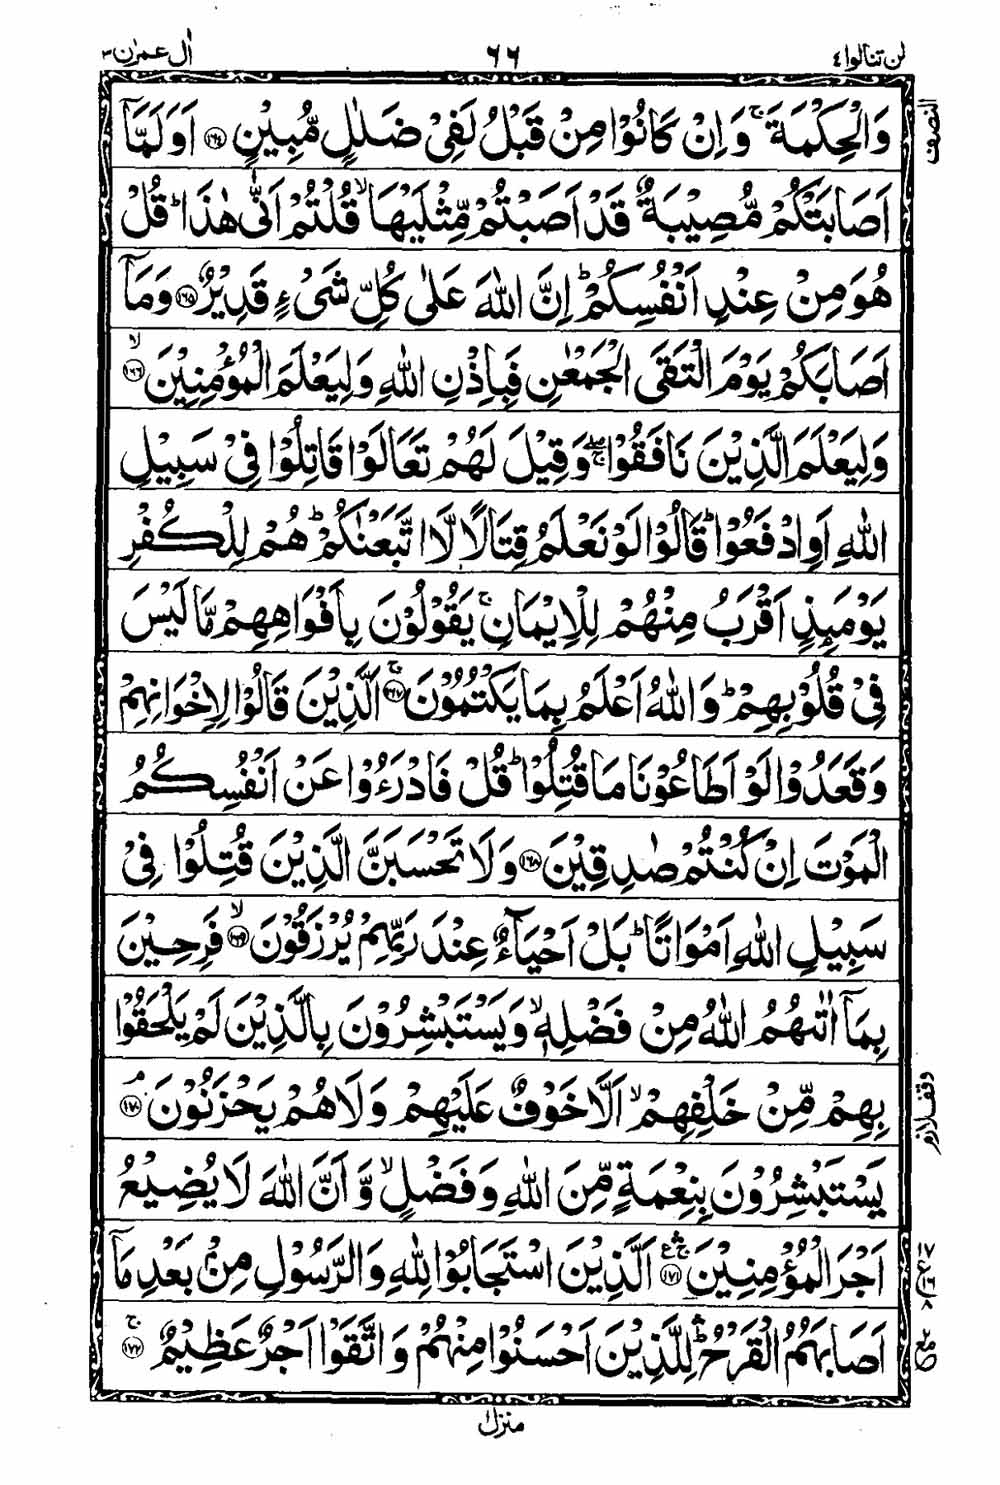 لن تنالوا ٤ ٦٦ اٰل عمرٰن ٣
النصف
وَالْحِكْمَةَ ۚ وَاِنْ كَانُوْا مِنْ قَبْلُ لَفِیْ ضَلٰلٍ مُّبِیْنٍ ﴿۱۶۴﴾ اَوَلَمَّاۤ
اَصَابَتْكُمْ مُّصِیْبَةٌ قَدْ اَصَبْتُمْ مِّثْلَیْهَا ۙ قُلْتُمْ اَنّٰی هٰذَا ؕ قُلْ
هُوَ مِنْ عِنْدِ اَنْفُسِكُمْ ؕ اِنَّ اللّٰهَ عَلٰی كُلِّ شَیْءٍ قَدِیْرٌ ﴿۱۶۵﴾ وَمَاۤ
اَصَابَكُمْ یَوْمَ الْتَقَی الْجَمْعٰنِ فَبِاِذْنِ اللّٰهِ وَلِیَعْلَمَ الْمُؤْمِنِیْنَ ﴿۱۶۶﴾ ۙ
وَلِیَعْلَمَ الَّذِیْنَ نَافَقُوْا ۖۚ وَقِیْلَ لَهُمْ تَعَالَوْا قَاتِلُوْا فِیْ سَبِیْلِ
اللّٰهِ اَوِ ادْفَعُوْا ؕ قَالُوْا لَوْ نَعْلَمُ قِتَالًا لَّا اتَّبَعْنٰكُمْ ؕ هُمْ لِلْكُفْرِ
یَوْمَئِذٍ اَقْرَبُ مِنْهُمْ لِلْاِیْمَانِ ۚ یَقُوْلُوْنَ بِاَفْوَاهِهِمْ مَّا لَیْسَ
فِیْ قُلُوْبِهِمْ ؕ وَاللّٰهُ اَعْلَمُ بِمَا یَكْتُمُوْنَ ﴿۱۶۷﴾ ۚ اَلَّذِیْنَ قَالُوْا لِاِخْوَانِهِمْ
وَقَعَدُوْا لَوْ اَطَاعُوْنَا مَا قُتِلُوْا ؕ قُلْ فَادْرَءُوْا عَنْ اَنْفُسِكُمُ
الْمَوْتَ اِنْ كُنْتُمْ صٰدِقِیْنَ ﴿۱۶۸﴾ وَلَا تَحْسَبَنَّ الَّذِیْنَ قُتِلُوْا فِیْ
سَبِیْلِ اللّٰهِ اَمْوَاتًا ؕ بَلْ اَحْیَآءٌ عِنْدَ رَبِّهِمْ یُرْزَقُوْنَ ﴿۱۶۹﴾ ۙ فَرِحِیْنَ
بِمَاۤ اٰتٰىهُمُ اللّٰهُ مِنْ فَضْلِهٖ ۙ وَیَسْتَبْشِرُوْنَ بِالَّذِیْنَ لَمْ یَلْحَقُوْا
بِهِمْ مِّنْ خَلْفِهِمْ ۙ اَلَّا خَوْفٌ عَلَیْهِمْ وَلَا هُمْ یَحْزَنُوْنَ ﴿۱۷۰﴾ ۘ
وقف لازم
یَسْتَبْشِرُوْنَ بِنِعْمَةٍ مِّنَ اللّٰهِ وَفَضْلٍ ۙ وَّاَنَّ اللّٰهَ لَا یُضِیْعُ
اَجْرَ الْمُؤْمِنِیْنَ ﴿۱۷۱﴾ ۛۚ ع اَلَّذِیْنَ اسْتَجَابُوْا لِلّٰهِ وَالرَّسُوْلِ مِنْۢ بَعْدِ مَاۤ
۱۷ ع ۱۶ ۸
اَصَابَهُمُ الْقَرْحُ ۛؕ لِلَّذِیْنَ اَحْسَنُوْا مِنْهُمْ وَاتَّقَوْا اَجْرٌ عَظِیْمٌ ﴿۱۷۲﴾ ۚ
منزل ۱